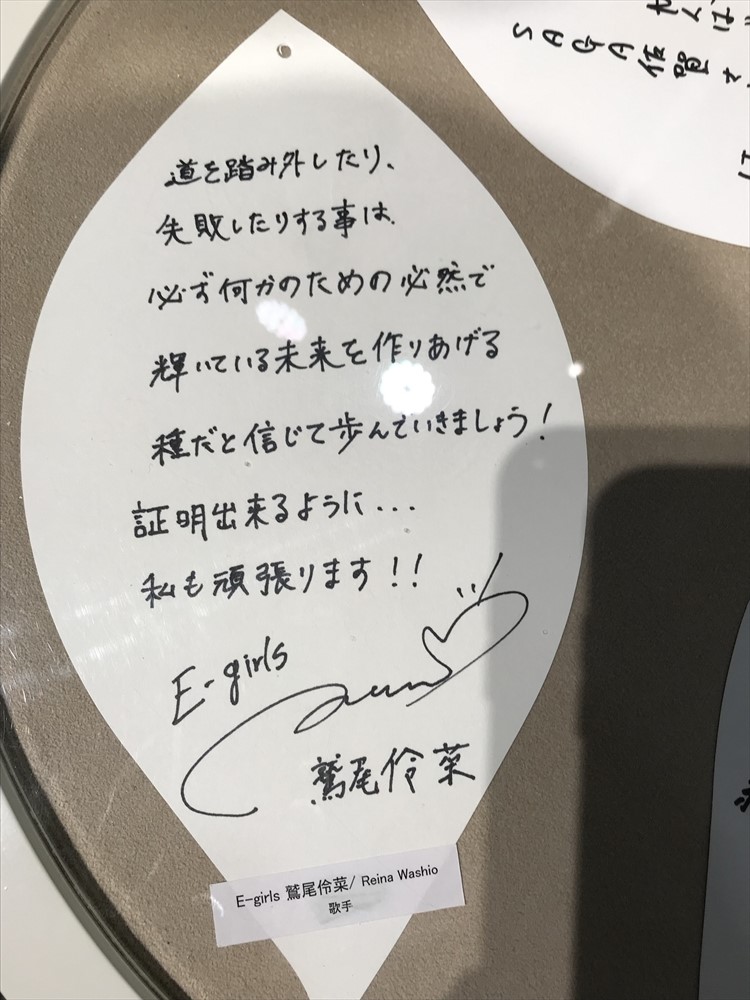 道を踏み外したり、
失敗したりする事は、
必ず何かのための必然で
輝いている未来を作りあげる
種だと信じて歩んでいきましょう!
証明出来るように...
私も頑張ります!!
E-girls
鷲尾伶菜
E-girls 鷲尾伶菜/ Reina Washio
歌手
SAGA佐賀さ